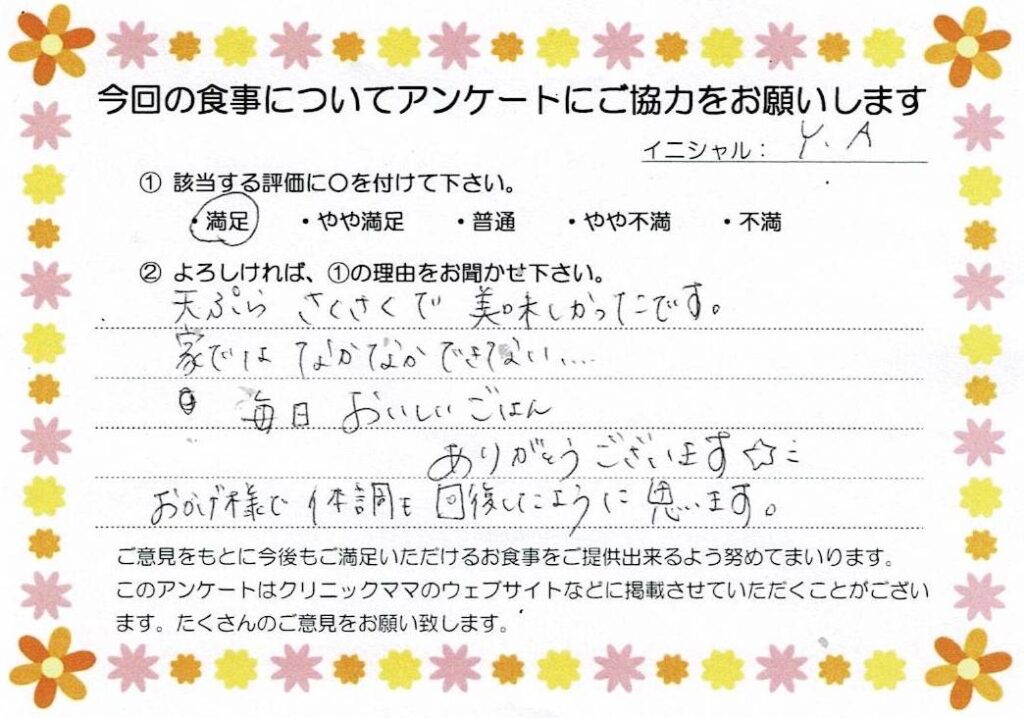 今回の食事についてアンケートにご協力をお願いします
イニシャル： Y. A
① 該当する評価に〇を付けて下さい。
・満足 ・やや満足 ・普通 ・やや不満 ・不満
② よろしければ、①の理由をお聞かせ下さい。
天ぷら さくさくで 美味しかったです。
家では なかなかできない....
毎日 おいしいごはん
ありがとうございます☆ミ
おかげ様で 体調も 回復したように 思います。
ご意見をもとに今後もご満足いただけるお食事をご提供出来るよう努めてまいります。
このアンケートはクリニックママのウェブサイトなどに掲載させていただくことがござい
ます。たくさんのご意見をお願い致します。